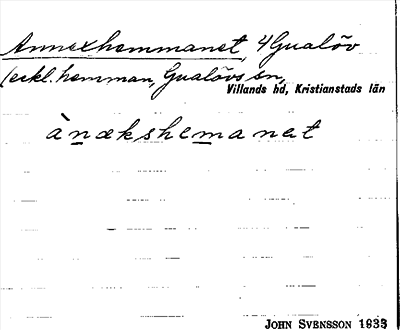 Annexhemmanet, 4 Gualöv
(eckl. hemman, Gualövs sn,
Villands hd, Kristianstads län
ànækshemanet
JOHN SVENSSON 1933